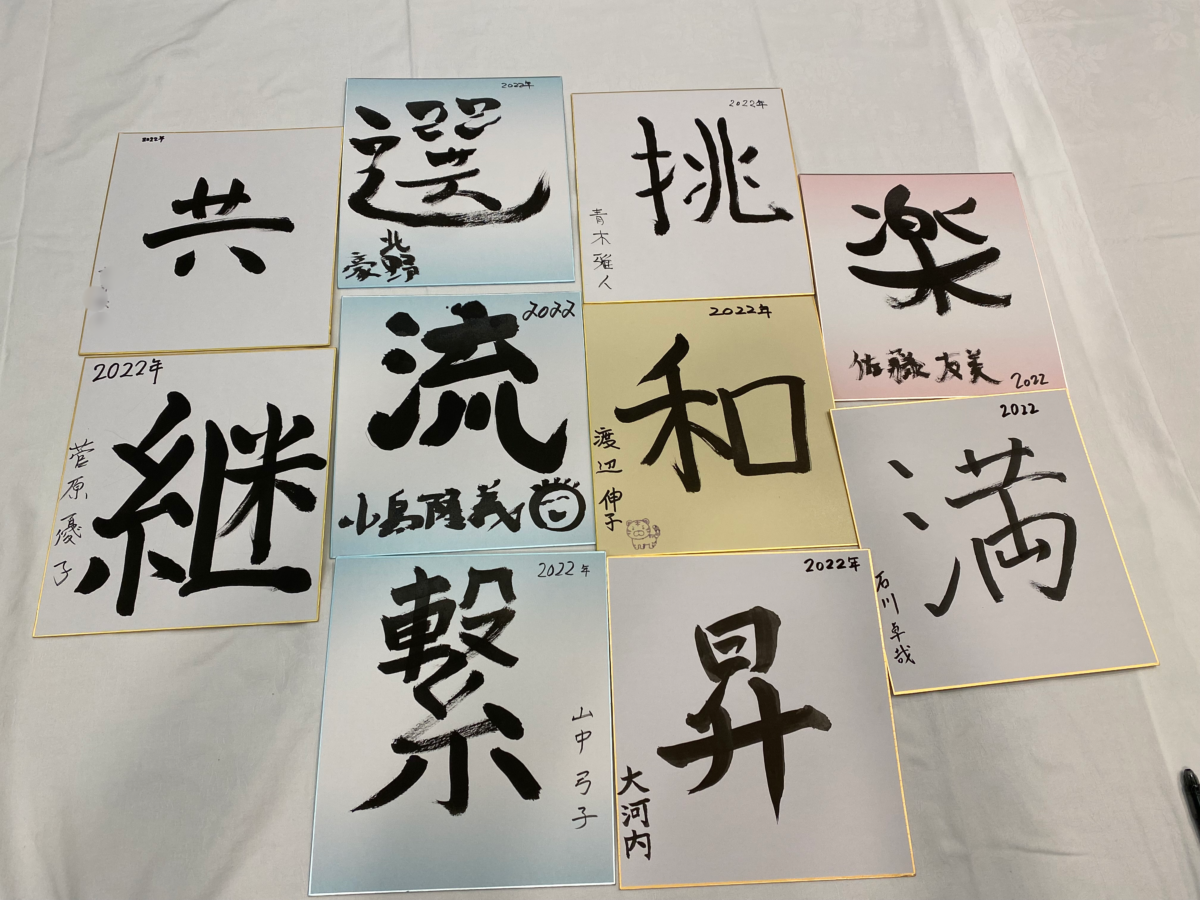 2022年
共
2022年
選
北野
豪
2022年
挑
青木雅人
楽
佐藤友美
2022
2022年
継
菅原優子
2022
流
小島隆義
2022年
和
渡辺伸子
2022
満
石川卓哉
2022年
繋
山中弓子
2022年
昇
大河内